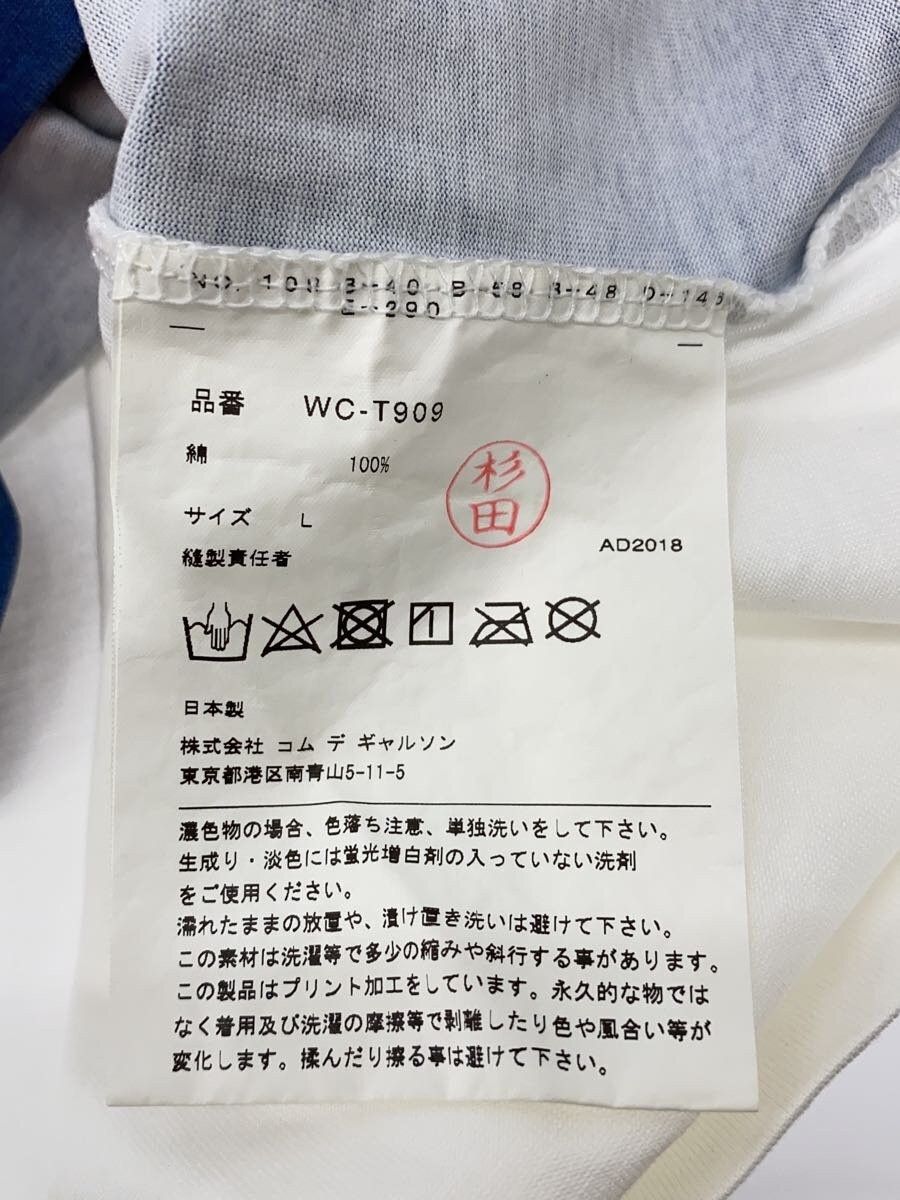 E-290
品番 WC-T909
綿 100%
杉田
サイズ L
AD2018
縫製責任者
日本製
株式会社 コム デ ギャルソン
東京都港区南青山5-11-5
濃色物の場合、色落ち注意、単独洗いをして下さい。
生成り・淡色には蛍光増白剤の入っていない洗剤
をご使用ください。
濡れたままの放置や、漬け置き洗いは避けて下さい。
この素材は洗濯等で多少の縮みや斜行する事があります。
この製品はプリント加工をしています。永久的な物では
なく着用及び洗濯の摩擦等で剥離したり色や風合い等が
変化します。揉んだり擦る事は避けて下さい。